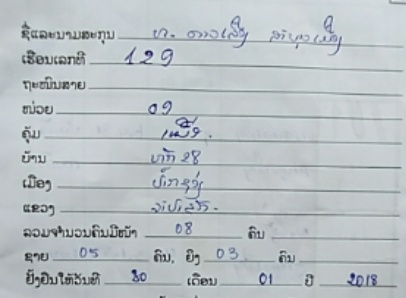 ຊື່ແລະນາມສະກຸນ ທ. ດາວເສັງ
ເຮືອນເລກທີ 129
ຖະໜົນສາຍ
ໜ່ວຍ 09
ຄຸ້ມ
ບ້ານ ຫຼັກ 28
ເມືອງ ປາກຊ່ອງ
ແຂວງ ຈຳປາສັກ.
ລວມຈຳນວນຄົນມີໜ້າ 08 ຄົນ
ຊາຍ 05 ຄົນ, ຍິງ 03 ຄົນ
ຢັ້ງຢືນໃຫ້ວັນທີ 30 ເດືອນ 01 ປີ 2018